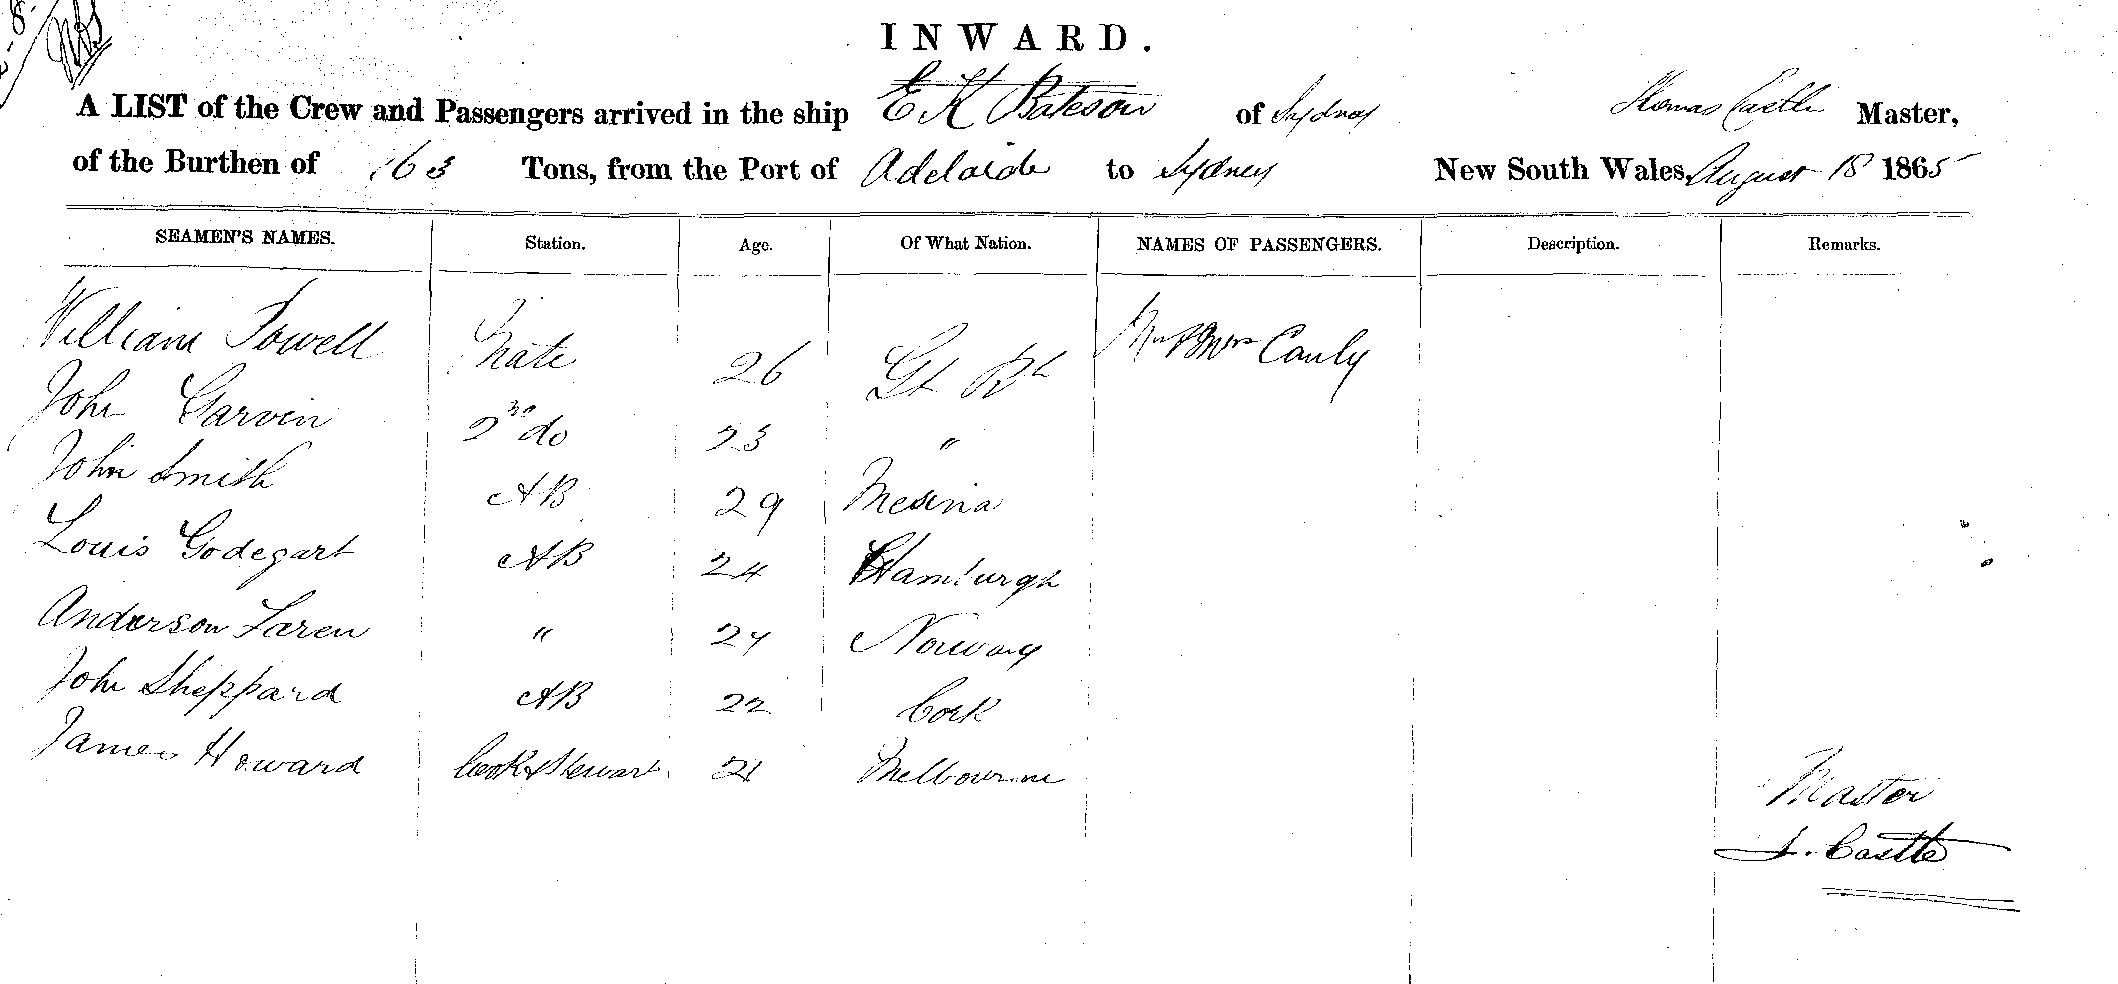 INWARD.
A LIST of the Crew and Passengers arrived in the ship E K Bateson of Sydney Thomas Castle Master,
of the Burthen of 163 Tons, from the Port of Adelaide to Sydney New South Wales, August 18 1865
SEAMEN'S NAMES. Station. Age. Of What Nation. NAMES OF PASSENGERS. Description. Remarks.
William Towell Mate 26 Gt Bt Mr & Mrs Cauly
John Garvin 2nd do 23 "
John Smith AB 29 Mesina
Louis Godegart AB 24 Hamburgh
Anderson Laren " 24 Norway
John Sheppard AB 22 Cork
James Howard Cook & Stewart 21 Melbourne
Master
T. Castle